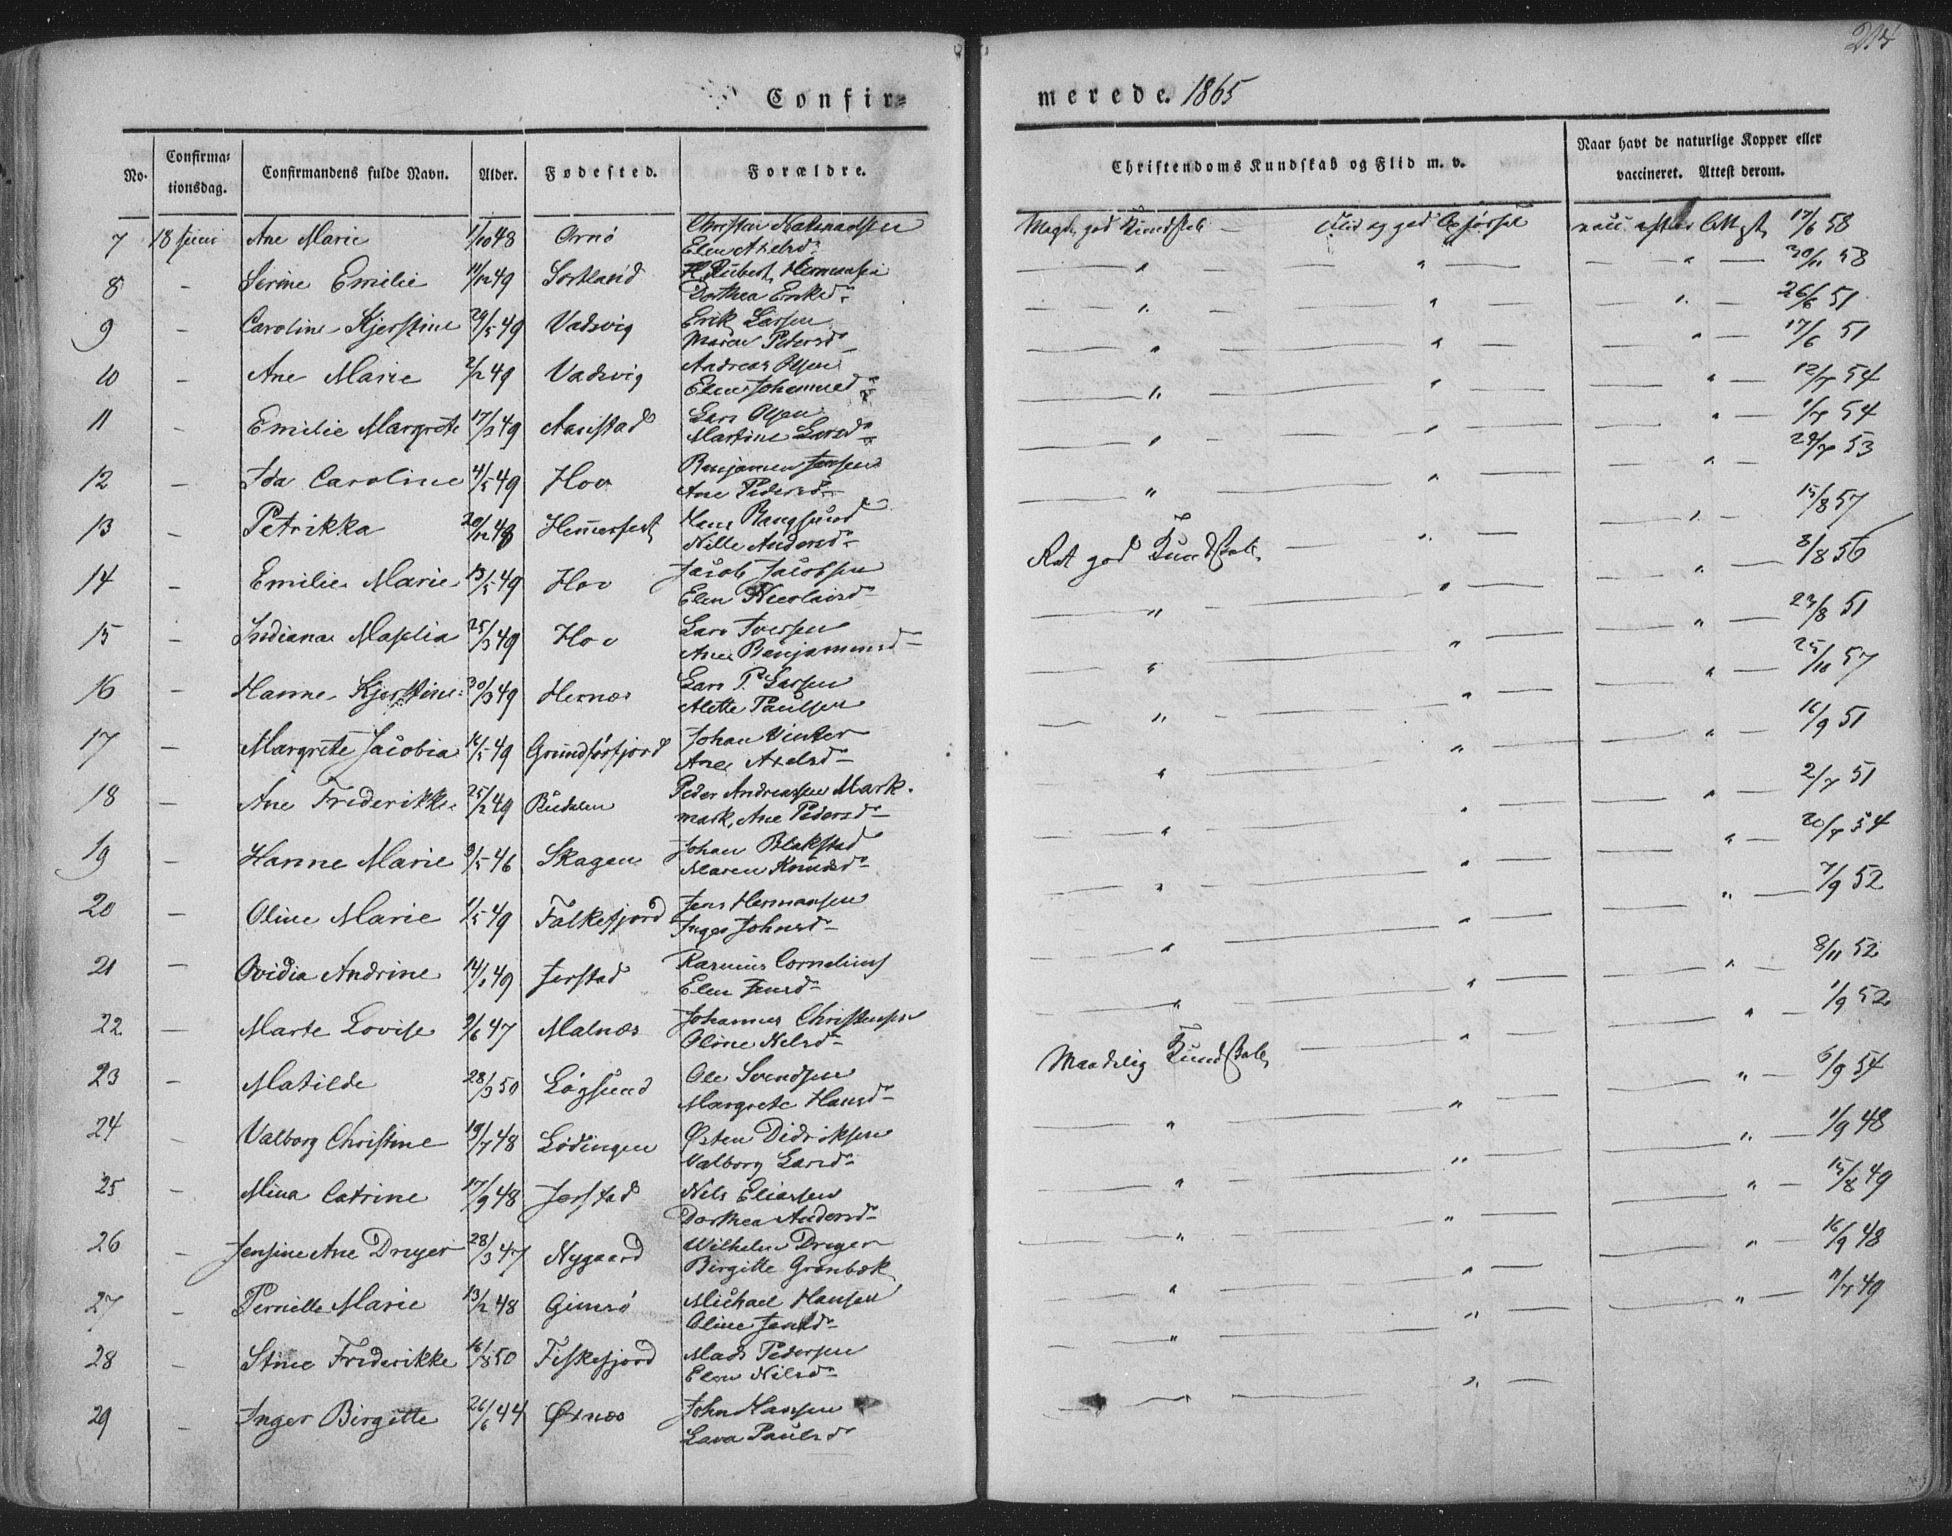 Confir=
merede. 1865
No.
Confirma=
tionsdag.
Confirmandens fulde Navn.
Alder.
Fødested.
Forældre.
Christendoms Kundskab og Flid m. v.
Naar havt de naturlige Kopper eller
vaccineret. Attest derom.
7 18 juni Ane Marie 1/10 48 Christen
Elen Axelsd. Megt. god Kundskab Flid og god Opførsel vacc. efter Att. 17/6 58
8 - Serine Emilie 11/12 49 Sortland Hermansen
Dorthea " " " 30/11 58
9 - Caroline Kjerstine 29/5 49 Vadsvig Erik Larsen
Maren Pedersd " " " 26/6 51
10 - Ane Marie 2/2 49 Vadsvig Andreas Olsen
Elen " " " 17/6 51
11 - Emilie Margrete 17/3 49 Lars Olsen
Martine Larsd " " " 12/7 54
12 - Ida Caroline 4/5 49 Hov Benjamin Jensen
Ane Pedersd " " " 1/7 54
13 - Petrikka 20/12 48 Hans
Nille Andersd " " " 29/7 53
14 - Emilie Marie 13/5 49 Hov Jacob Jacobsen
Elen Nicolaisd Ret god Kundskab " " 15/8 57
15 - Indiana 25/3 49 Hov Lars Iversen
Ane Benjaminsd " " " 8/8 56
16 - Hanne Kjerstine 30/3 49 Hernæs Lars P. Larsen
Alette Paulsen " " " 23/8 51
17 - Margrete Jacobia 16/5 49 Grundførfjord Johan Vinter
Ane Axelsd " " " 25/10 57
18 - Ane Friderikke 25/2 49 Peder Andreassen Mark.
mark, Ane Pedersd " " " 16/9 51
19 - Hanne Marie 9/5 46 Skagen Johan Blakstad
Maren Knudsd " " " 2/7 51
20 - Oline Marie 1/5 49 Falkefjord Jens Hermansen
Inger Johnsd " " " 20/7 54
21 - Ovidia Andrine 49 Jerstad Rasmus Cornelius
Elen Jensd " " " 7/9 52
22 - Marte Lovise 9/6 47 Malnæs Johannes Christensen
Oline Nilsd " " " 8/11 52
23 - Matilde 28/3 50 Løgsund Ole Svendsen
Margrete Hansd Maadelig Kundskab " " 1/9 52
24 - Valborg Christine 19/7 48 Lødingen Østen Didriksen
Valborg Larsd " " " 6/9 54
25 - Mina Catrine 17/9 48 Jerstad Nils Eliassen
Dorthea Andersd " " " 1/9 48
26 - Jensine Ane Dreyer 28/3 47 Nygaard Wilhelm Dreyer
Birgitte Grønbæk " " " 15/8 49
27 - Pernille Marie 13/2 48 Gimsø Michael Hansen
Oline Jensd " " " 16/9 48
28 - Stine Friderikke 16/8 50 Fiskefjord Mads Pedersen
Elen Nilsd " " " 11/7 49
29 - Inger Birgitte 26/6 44 Øxnæs John Hansen
Lava Paulsd " "